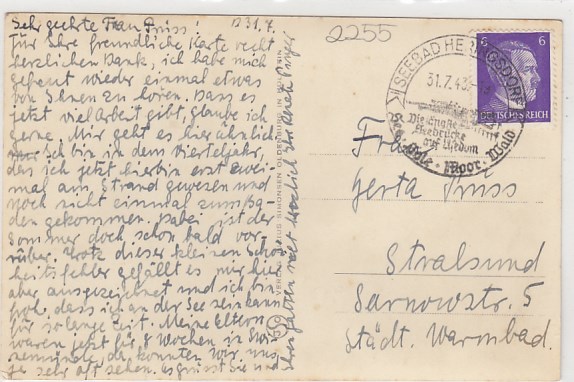 Sehr geehrte Frau Priss! D 31.7.
Für Ihre freundliche Karte recht
herzlichen Dank, ich habe mich
gefreut wieder einmal etwas
von Ihnen zu hören. Dass es
jetzt viel Arbeit gibt, glaube ich
gerne. Mir geht es hier ähnlich
Ich bin in dem Vierteljahr,
das ich jetzt hierbin erst zwei-
mal am Strand gewesen und
noch nicht einmal zum Ba-
den gekommen. Dabei ist der
Sommer doch schon bald vor-
rüber. Trotz dieser kleinen Schön-
heitsfehler gefällt es mir hier
aber ausgezeichnet und ich bin
froh, dass ich an der See sein kann
für so lange Zeit. Meine Eltern
waren jetzt für 8 Wochen in Swi-
nemünde, da konnten wir uns
ja sehr oft sehen. Es grüsst Sie und
Ihren Gatten recht herzlich Ihr
2255
SIMONSEN OLDENBURG IN HOLSTEIN
SEEBAD HERINGSDORF
31.7.43
Seebrücke
auf Usedom
See · Sole · Moor · Wald
6 6
DEUTSCHES REICH
Frau
Gerta Priss
Stralsund
Sarnowstr. 5
Städt. Warmbad.